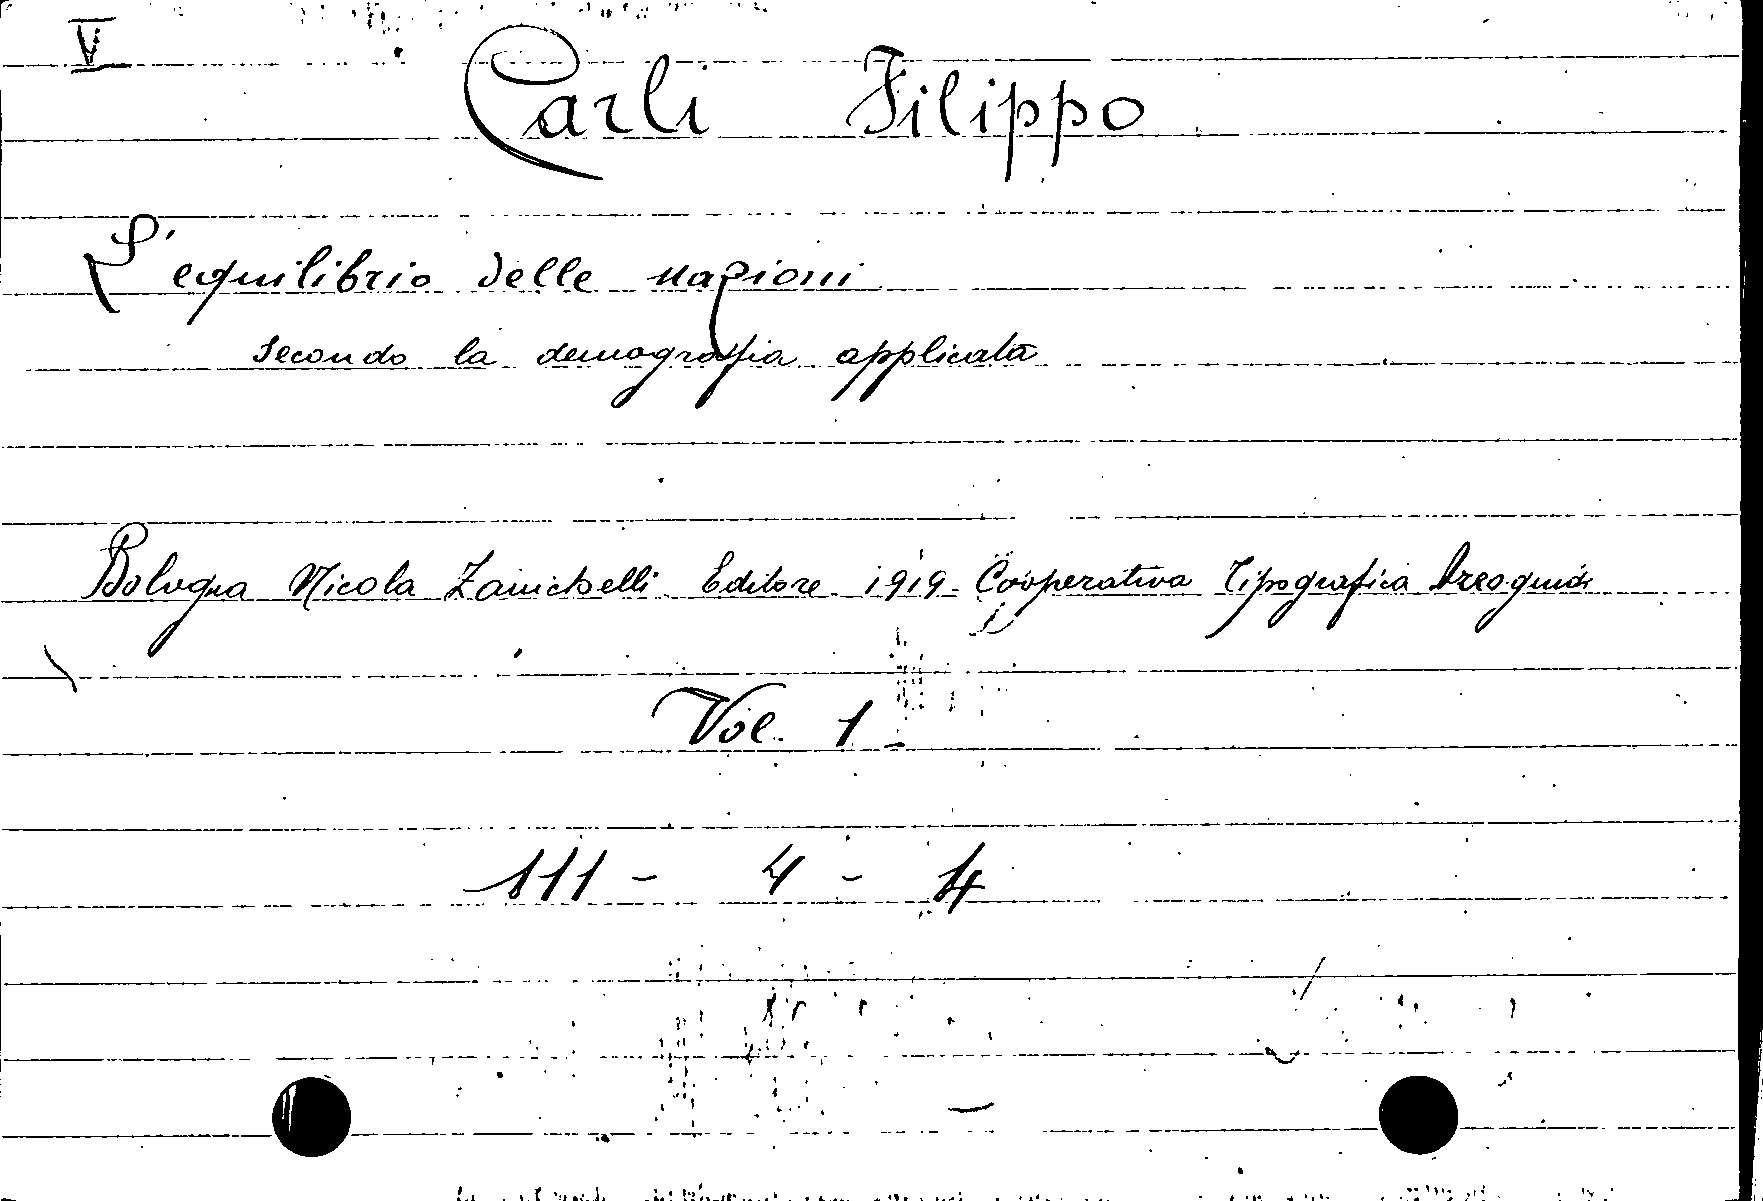 V
Carli Filippo
L'equilibrio delle nazioni
secondo la demografia applicata
Bologna Nicola Zanichelli Editore 1919 - Cooperativa Tipografica Azzoguidi
Vol. 1
111 - 4 - 4